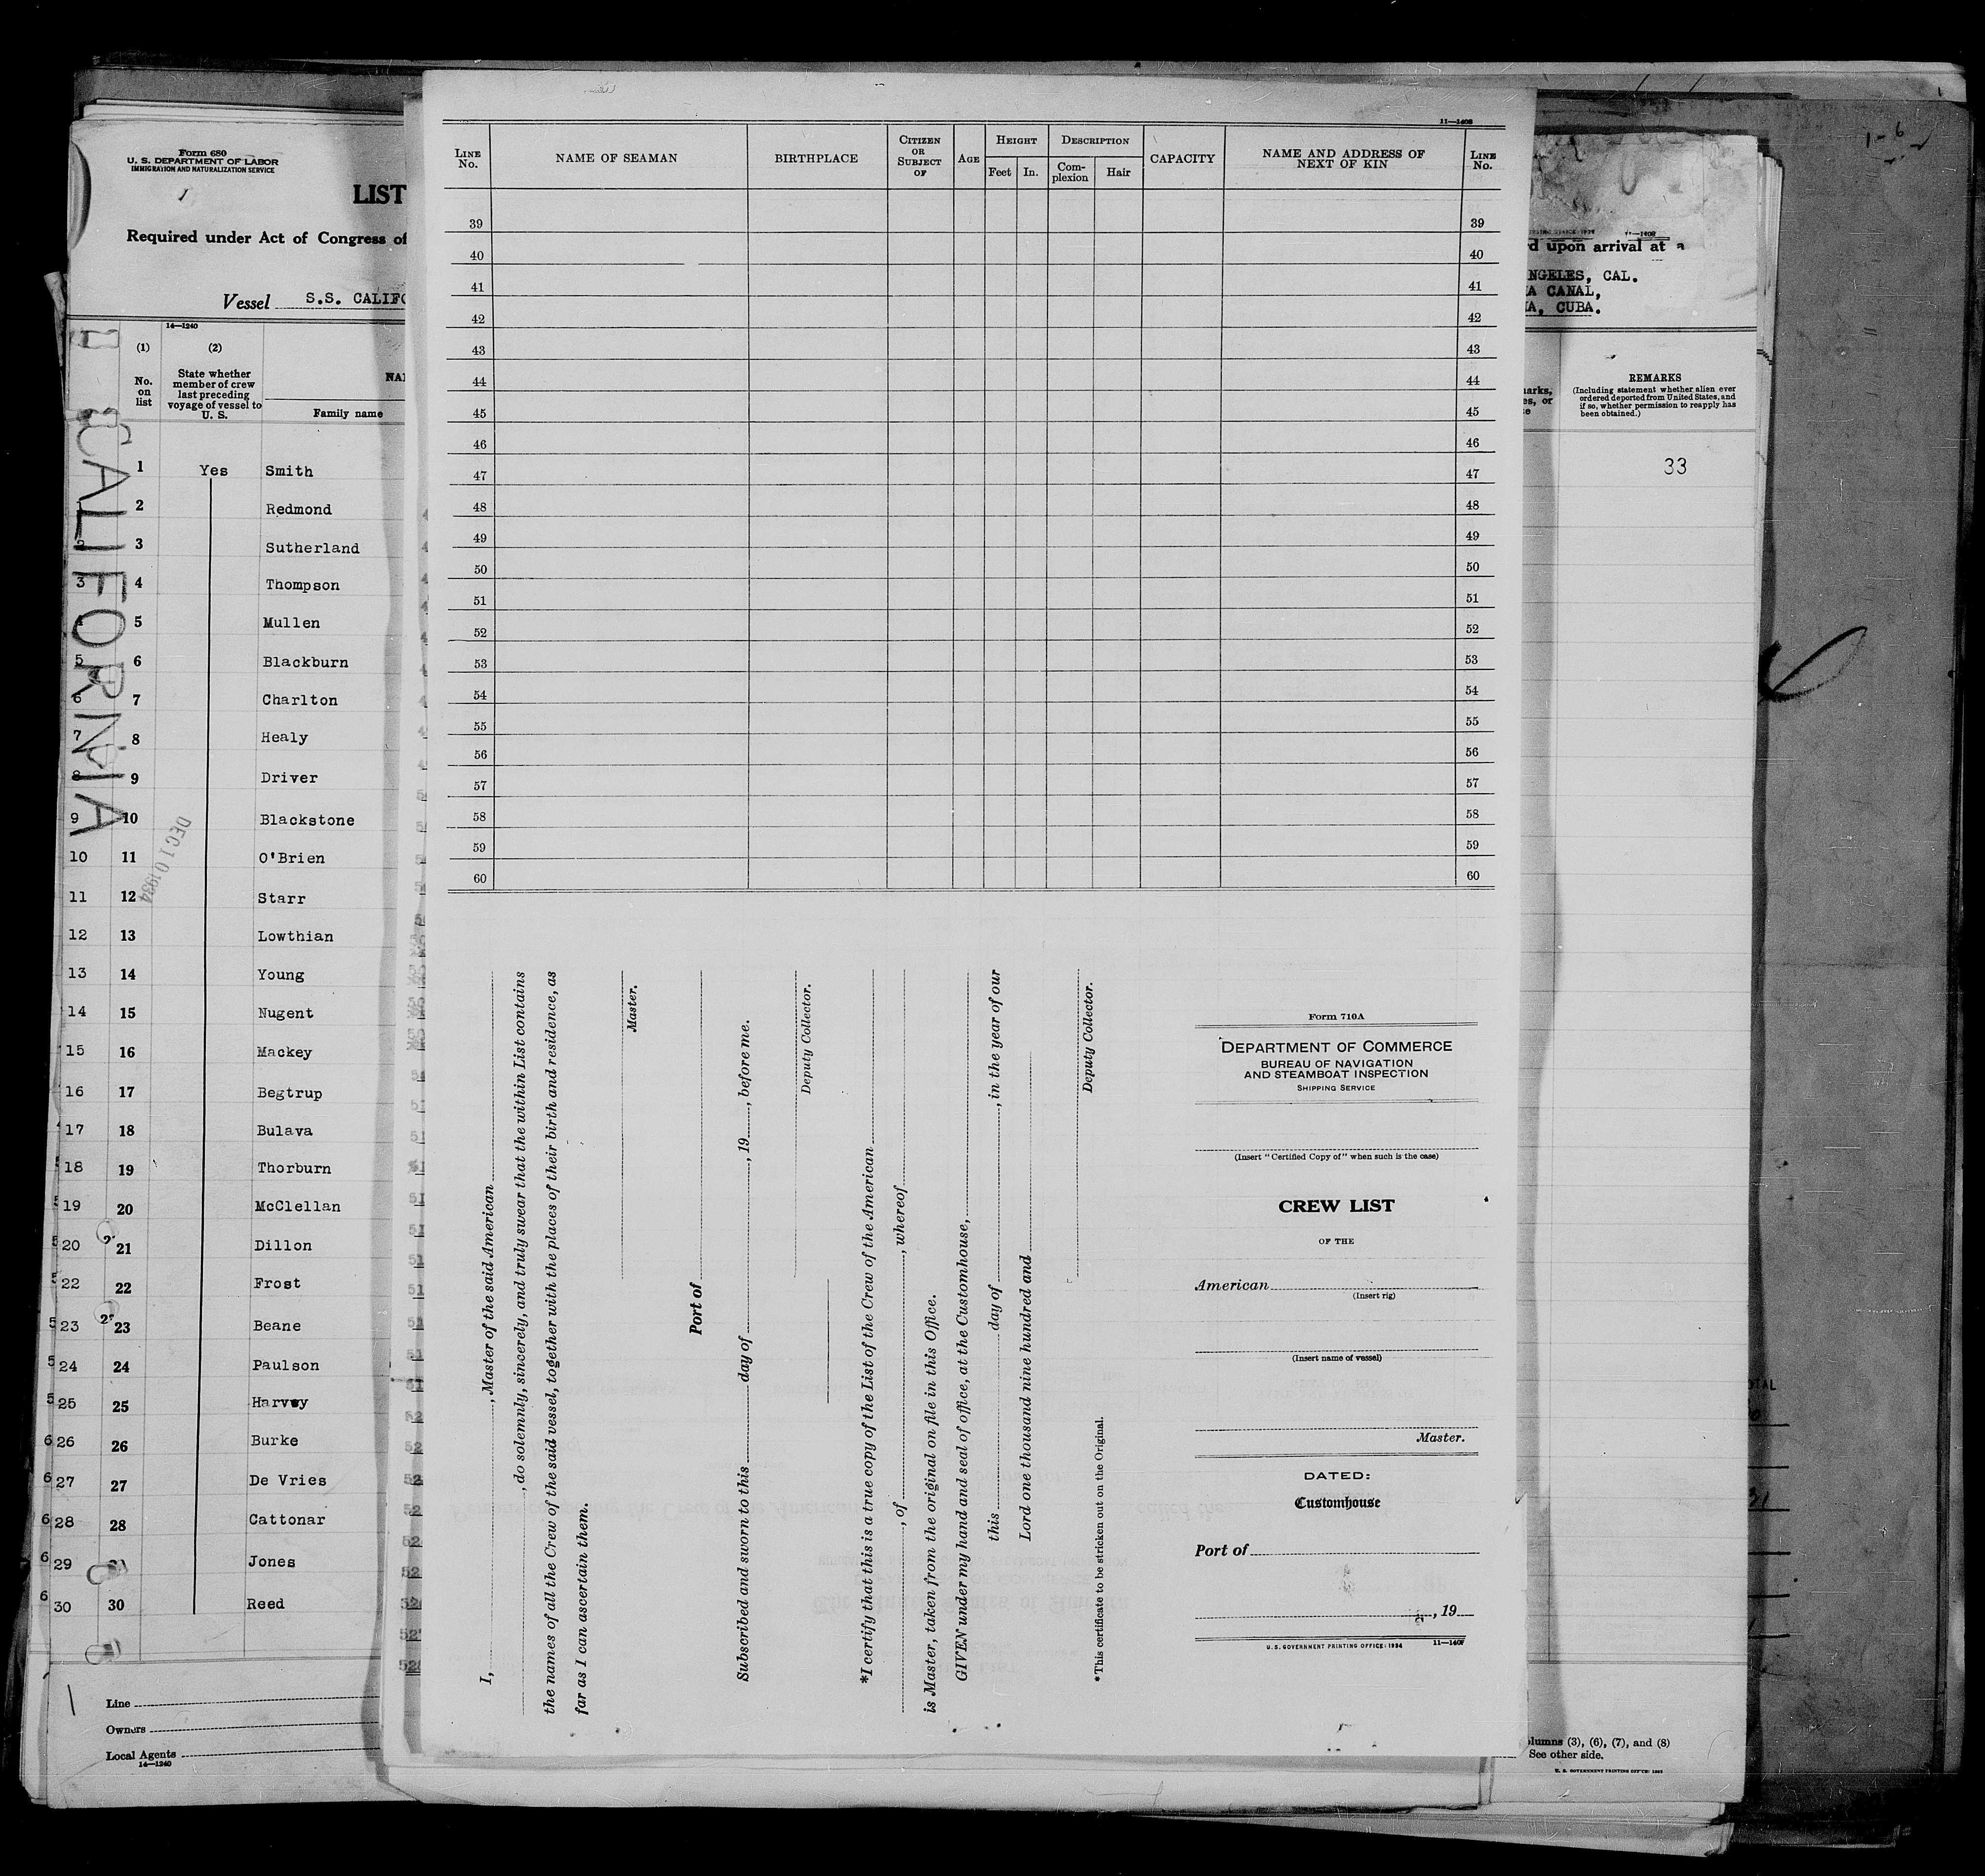 Form 680
U. S. DEPARTMENT OF LABOR
IMMIGRATION AND NATURALIZATION SERVICE
LIST
Required under Act of Congress of
Vessel S.S. CALIFO
14—1240
(1)
No.
on
list
(2)
State whether
member of crew
last preceding
voyage of vessel to
U. S.
Family name
CALIFORNIA
DEC 10 1934
1 Yes Smith
2 Redmond
3 Sutherland
3 4 Thompson
4 5 Mullen
5 6 Blackburn
6 7 Charlton
7 8 Healy
8 9 Driver
9 10 Blackstone
10 11 O'Brien
11 12 Starr
12 13 Lowthian
13 14 Young
14 15 Nugent
15 16 Mackey
16 17 Begtrup
17 18 Bulava
18 19 Thorburn
19 20 McClellan
20 21 Dillon
22 22 Frost
23 23 Beane
24 24 Paulson
25 25 Harvey
26 26 Burke
27 27 De Vries
28 28 Cattonar
29 Jones
30 30 Reed
Line
Owners
Local Agents
14—1240
11—1408
LINE No. NAME OF SEAMAN BIRTHPLACE CITIZEN OR SUBJECT OF AGE HEIGHT Feet In. DESCRIPTION Com-plexion Hair CAPACITY NAME AND ADDRESS OF NEXT OF KIN LINE No.
39 39
40 40
41 41
42 42
43 43
44 44
45 45
46 46
47 47
48 48
49 49
50 50
51 51
52 52
53 53
54 54
55 55
56 56
57 57
58 58
59 59
60 60
I, , Master of the said American
, do solemnly, sincerely, and truly swear that the within List contains
the names of all the Crew of the said vessel, together with the places of their birth and residence, as
far as I can ascertain them.
Master.
Port of
Subscribed and sworn to this day of , 19 , before me.
Deputy Collector.
*I certify that this is a true copy of the List of the Crew of the American
, of , whereof
is Master, taken from the original on file in this Office.
GIVEN under my hand and seal of office, at the Customhouse,
this day of , in the year of our
Lord one thousand nine hundred and
Deputy Collector.
*This certificate to be stricken out on the Original.
Form 710A
DEPARTMENT OF COMMERCE
BUREAU OF NAVIGATION
AND STEAMBOAT INSPECTION
SHIPPING SERVICE
(Insert "Certified Copy of" when such is the case)
CREW LIST
OF THE
American
(Insert rig)
(Insert name of vessel)
Master.
DATED:
Customhouse
Port of
, 19
U. S. GOVERNMENT PRINTING OFFICE: 1934 11—1408
1-6
11—1408
d upon arrival at a
NGELES, CAL.
A CANAL,
A, CUBA.
REMARKS
(Including statement whether alien ever
ordered deported from United States, and
if so, whether permission to reapply has
been obtained.)
33
31
lumns (3), (6), (7), and (8)
See other side.